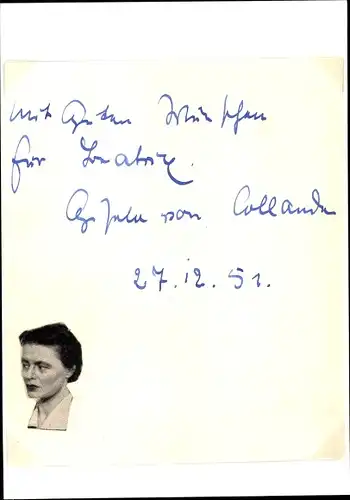 Mit guten Wünschen
für Beatrix.
Gisela von Collande
27.12.51.